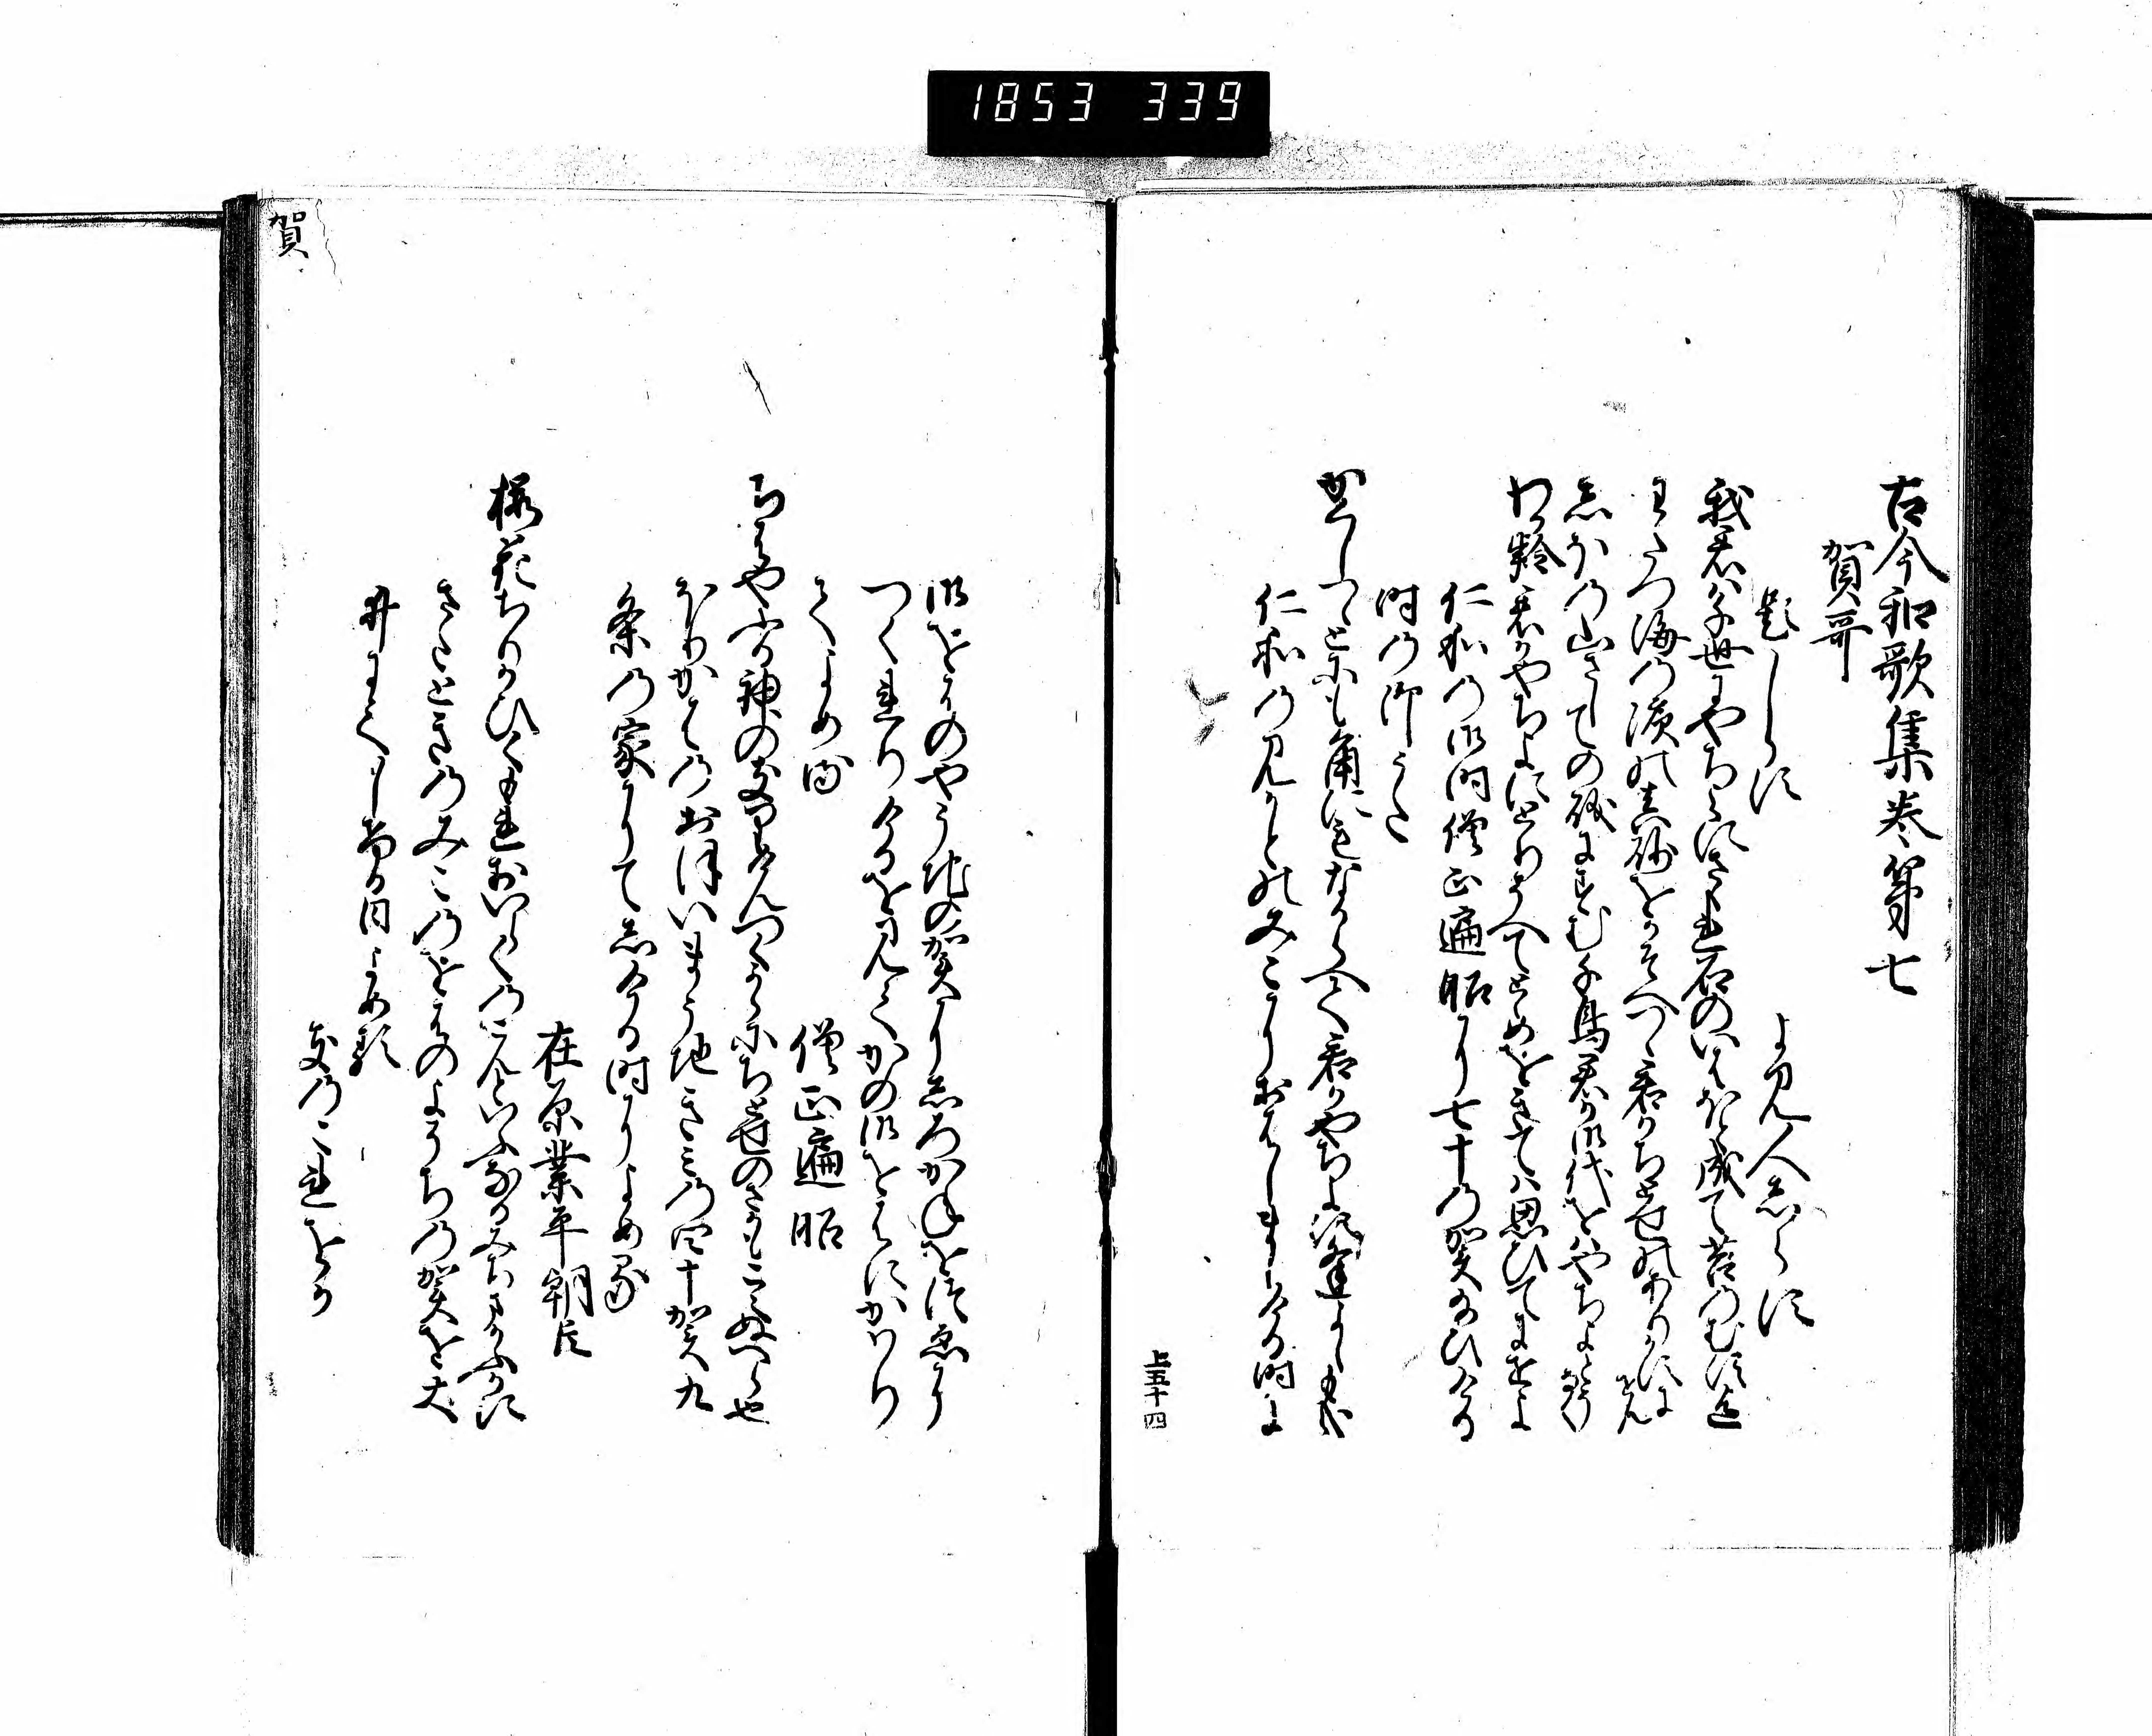 1853 339
古今和歌集巻第七
賀哥
題しらす
よみ人しらす
我君は千世にやちよにさゝれ石のいはほと成て苔のむすまて
わたつ海の濱の真砂をかそへつゝ君かちとせのありかすにせん
しほの山さしての礒にすむ千鳥君か御代をはやちよとそ鳴
わか齢君かやちよにとりそへてとゝめをきては思ひてにせよ
仁和の御門僧正遍昭に七十の賀給ひける
時の御うた
かくしつゝとにも角にもなからへて君かやちよに逢よしも哉
仁和の御門のみこにおはしましける時に
御をはのやそちの賀にしろかねをつゑに
つくれりけるを見てかの御をはにかはり
てよめる
僧正遍昭
ちはやふる神のきりけんつくからにちとせのさかもこえぬへら也
ほりかはのおほいまうちきみの四十賀九
条の家にてしける時によめる
在原業平朝臣
桜花ちりかひくもれおいらくのこんといふなるみちまかふかに
さたときのみこのをはのよそちの賀を大
井にてしける日よめる
きのこれをか
賀
上五十四